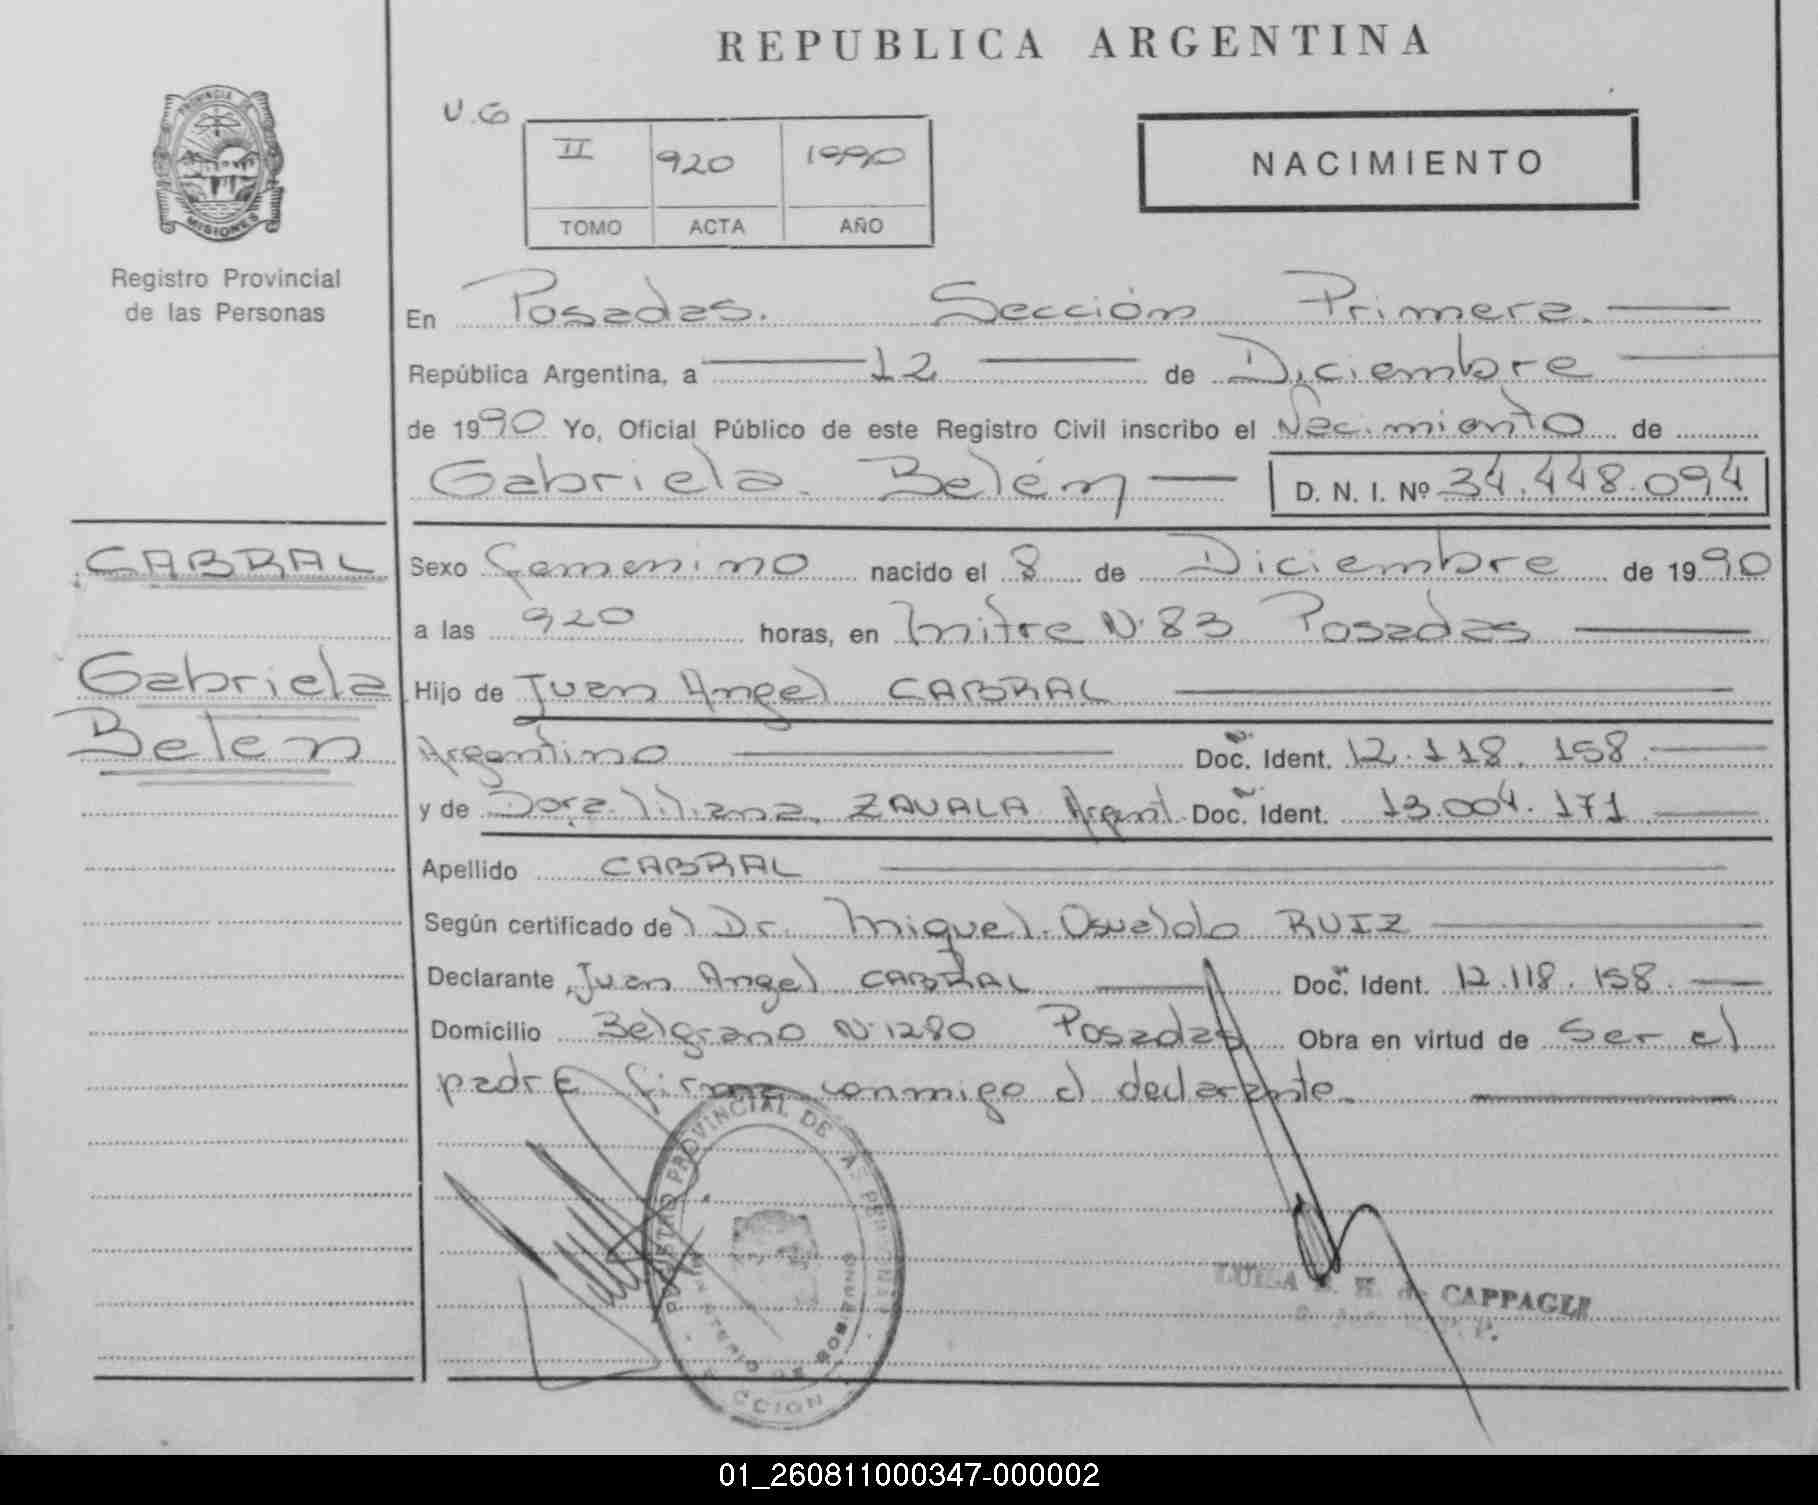 REPUBLICA ARGENTINA
U.G
II 920 1990
TOMO ACTA AÑO
NACIMIENTO
PROVINCIA DE
MISIONES
Registro Provincial
de las Personas
En Posadas. Sección Primera.
República Argentina, a 12 de Diciembre
de 1990 Yo, Oficial Público de este Registro Civil inscribo el Nacimiento de
Gabriela Belén D. N. I. Nº 34.448.094
CABRAL
Gabriela
Belen
Sexo femenino nacido el 8 de Diciembre de 1990
a las 920 horas, en Mitre Nº 83 Posadas
Hijo de Juan Angel CABRAL
Argentino Doc. Ident. 12.118.158
y de Dora liliana ZAVALA Argent. Doc. Ident. 13.004.171
Apellido CABRAL
Según certificado del Dr. Miguel Osvaldo RUIZ
Declarante Juan Angel CABRAL Doc. Ident. 12.118.158.
Domicilio Belgrano Nº 1280 Posadas Obra en virtud de ser el
padre firma conmigo el declarante.
PROVINCIAL DE
CAPPAGLI
01_260811000347-000002